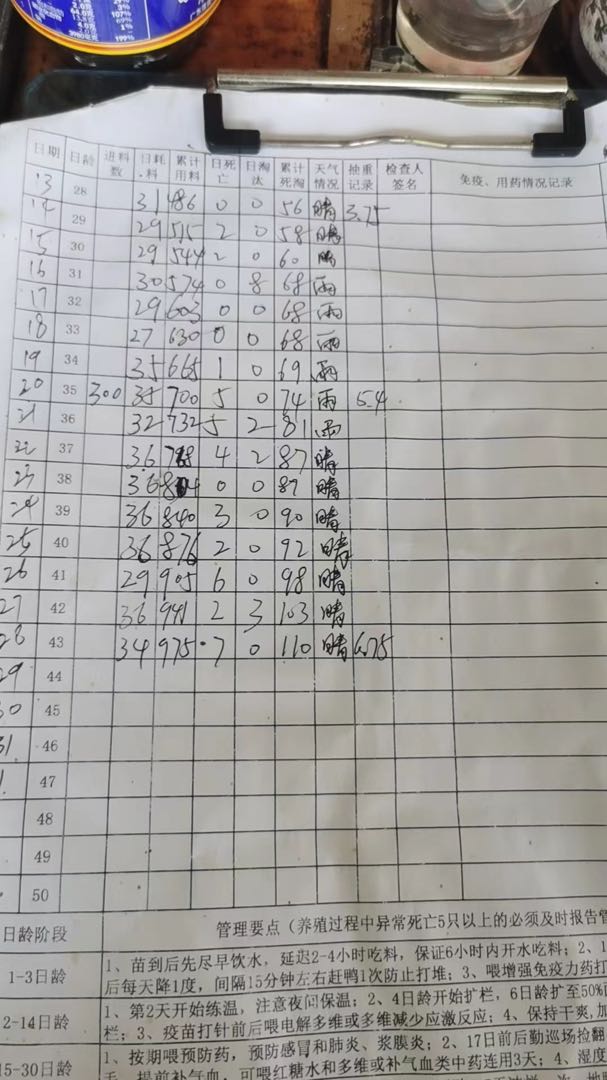 2.0克 3%
64.0克 107%
4.0克 1%
199%
日期 日龄 进料数 日耗料 累计用料 日死亡 日淘汰 累计死淘 天气情况 抽重记录 检查人签名 免疫、用药情况记录
13 28 31 486 0 0 56 晴 3.75
14 29 29 515 2 0 58 晴
15 30 29 544 2 0 60 晴
16 31 30 574 0 8 68 雨
17 32 29 603 0 0 68 雨
18 33 27 630 0 0 68 雨
19 34 35 665 1 0 69 雨
20 35 300 35 700 5 0 74 雨 5.4
21 36 32 732 5 2 81 雨
22 37 36 768 4 2 87 晴
23 38 36 804 0 0 87 晴
24 39 36 840 3 0 90 晴
25 40 36 876 2 0 92 晴
26 41 29 905 6 0 98 晴
27 42 36 941 2 3 103 晴
28 43 34 975 7 0 110 晴 6.75
29 44
30 45
31 46
1 47
48
49
50
日龄阶段 管理要点（养殖过程中异常死亡5只以上的必须及时报告管
1-3日龄 1、苗到后先尽早饮水，延迟2-4小时吃料，保证6小时内开水吃料；2、1
后每天降1度，间隔15分钟左右赶鸭1次防止打堆；3、喂增强免疫力药打
2-14日龄 1、第2天开始练温，注意夜间保温；2、4日龄开始扩栏，6日龄扩至50%面
栏；3、疫苗打针前后喂电解多维或多维减少应激反应；4、保持干爽,加
15-30日龄 1、按期喂预防药，预防感冒和肺炎、浆膜炎；2、17日前后勤巡场捡翻
毛，提前补气血，可喂红糖水和多维或补气血类中药连用3天；4、湿度